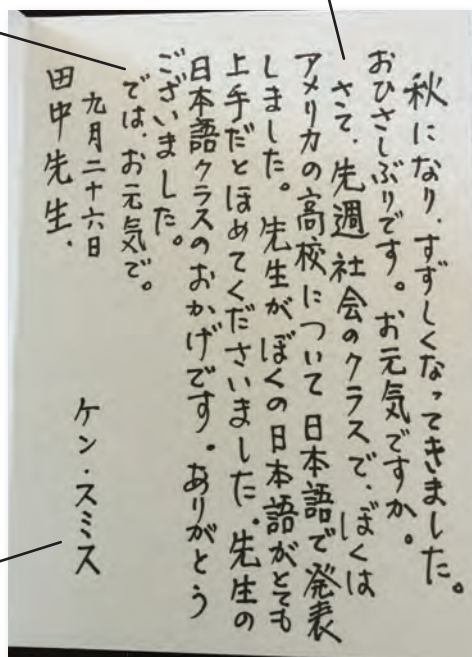 秋になり、すずしくなってきました。
おひさしぶりです。お元気ですか。
さて、先週社会のクラスで、ぼくは
アメリカの高校について日本語で発表
しました。先生がぼくの日本語がとても
上手だとほめてくださいました。先生の
日本語クラスのおかげです。ありがとう
ございました。
では、お元気で。
九月二十六日
ケン・スミス
田中先生、